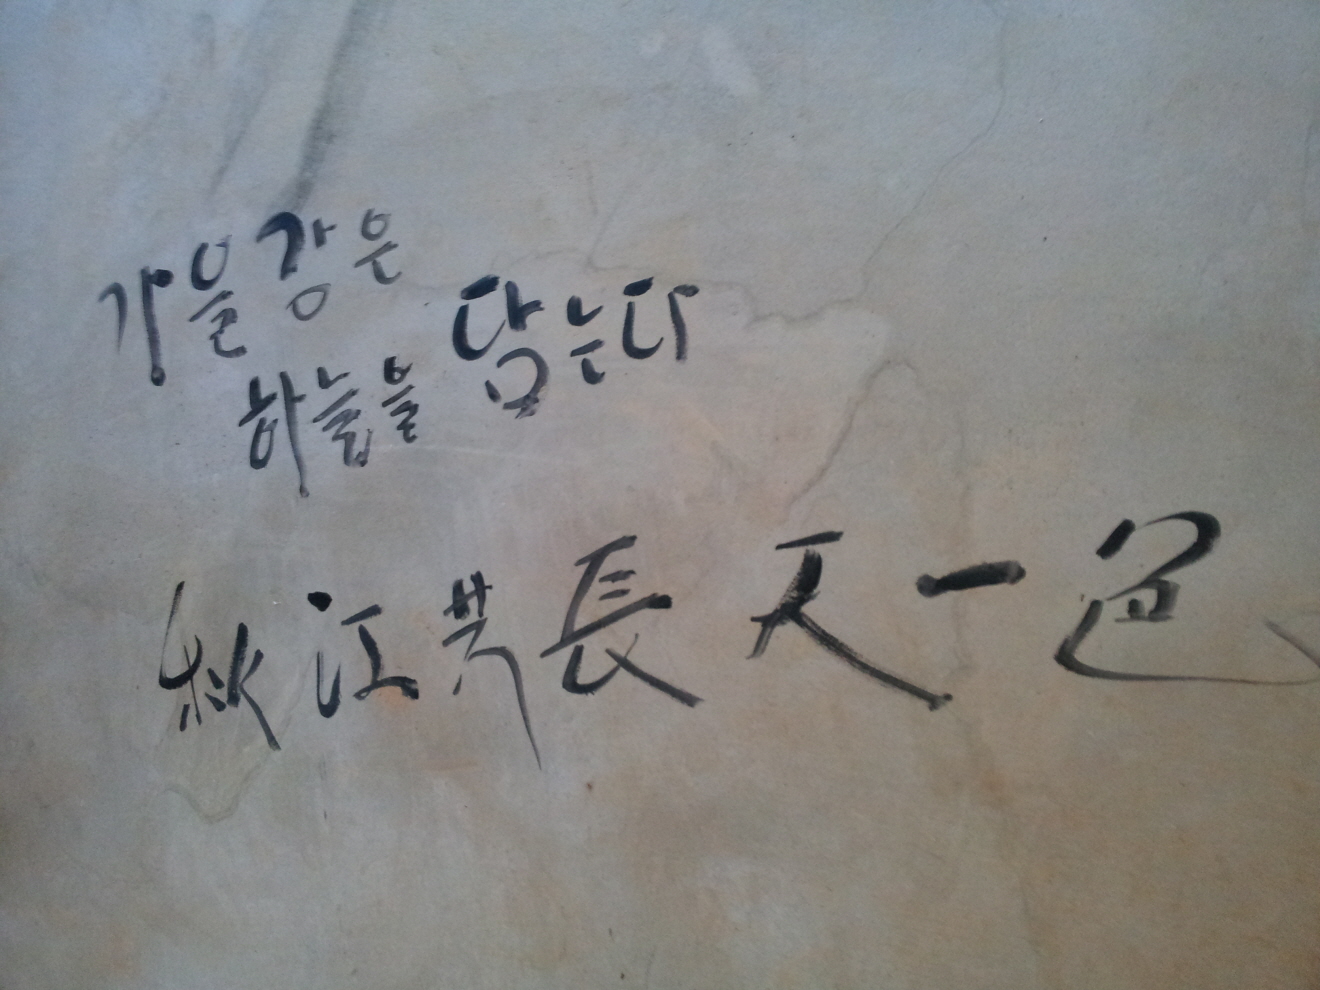 가을 강은
하늘을 담는다
秋江共長天一色